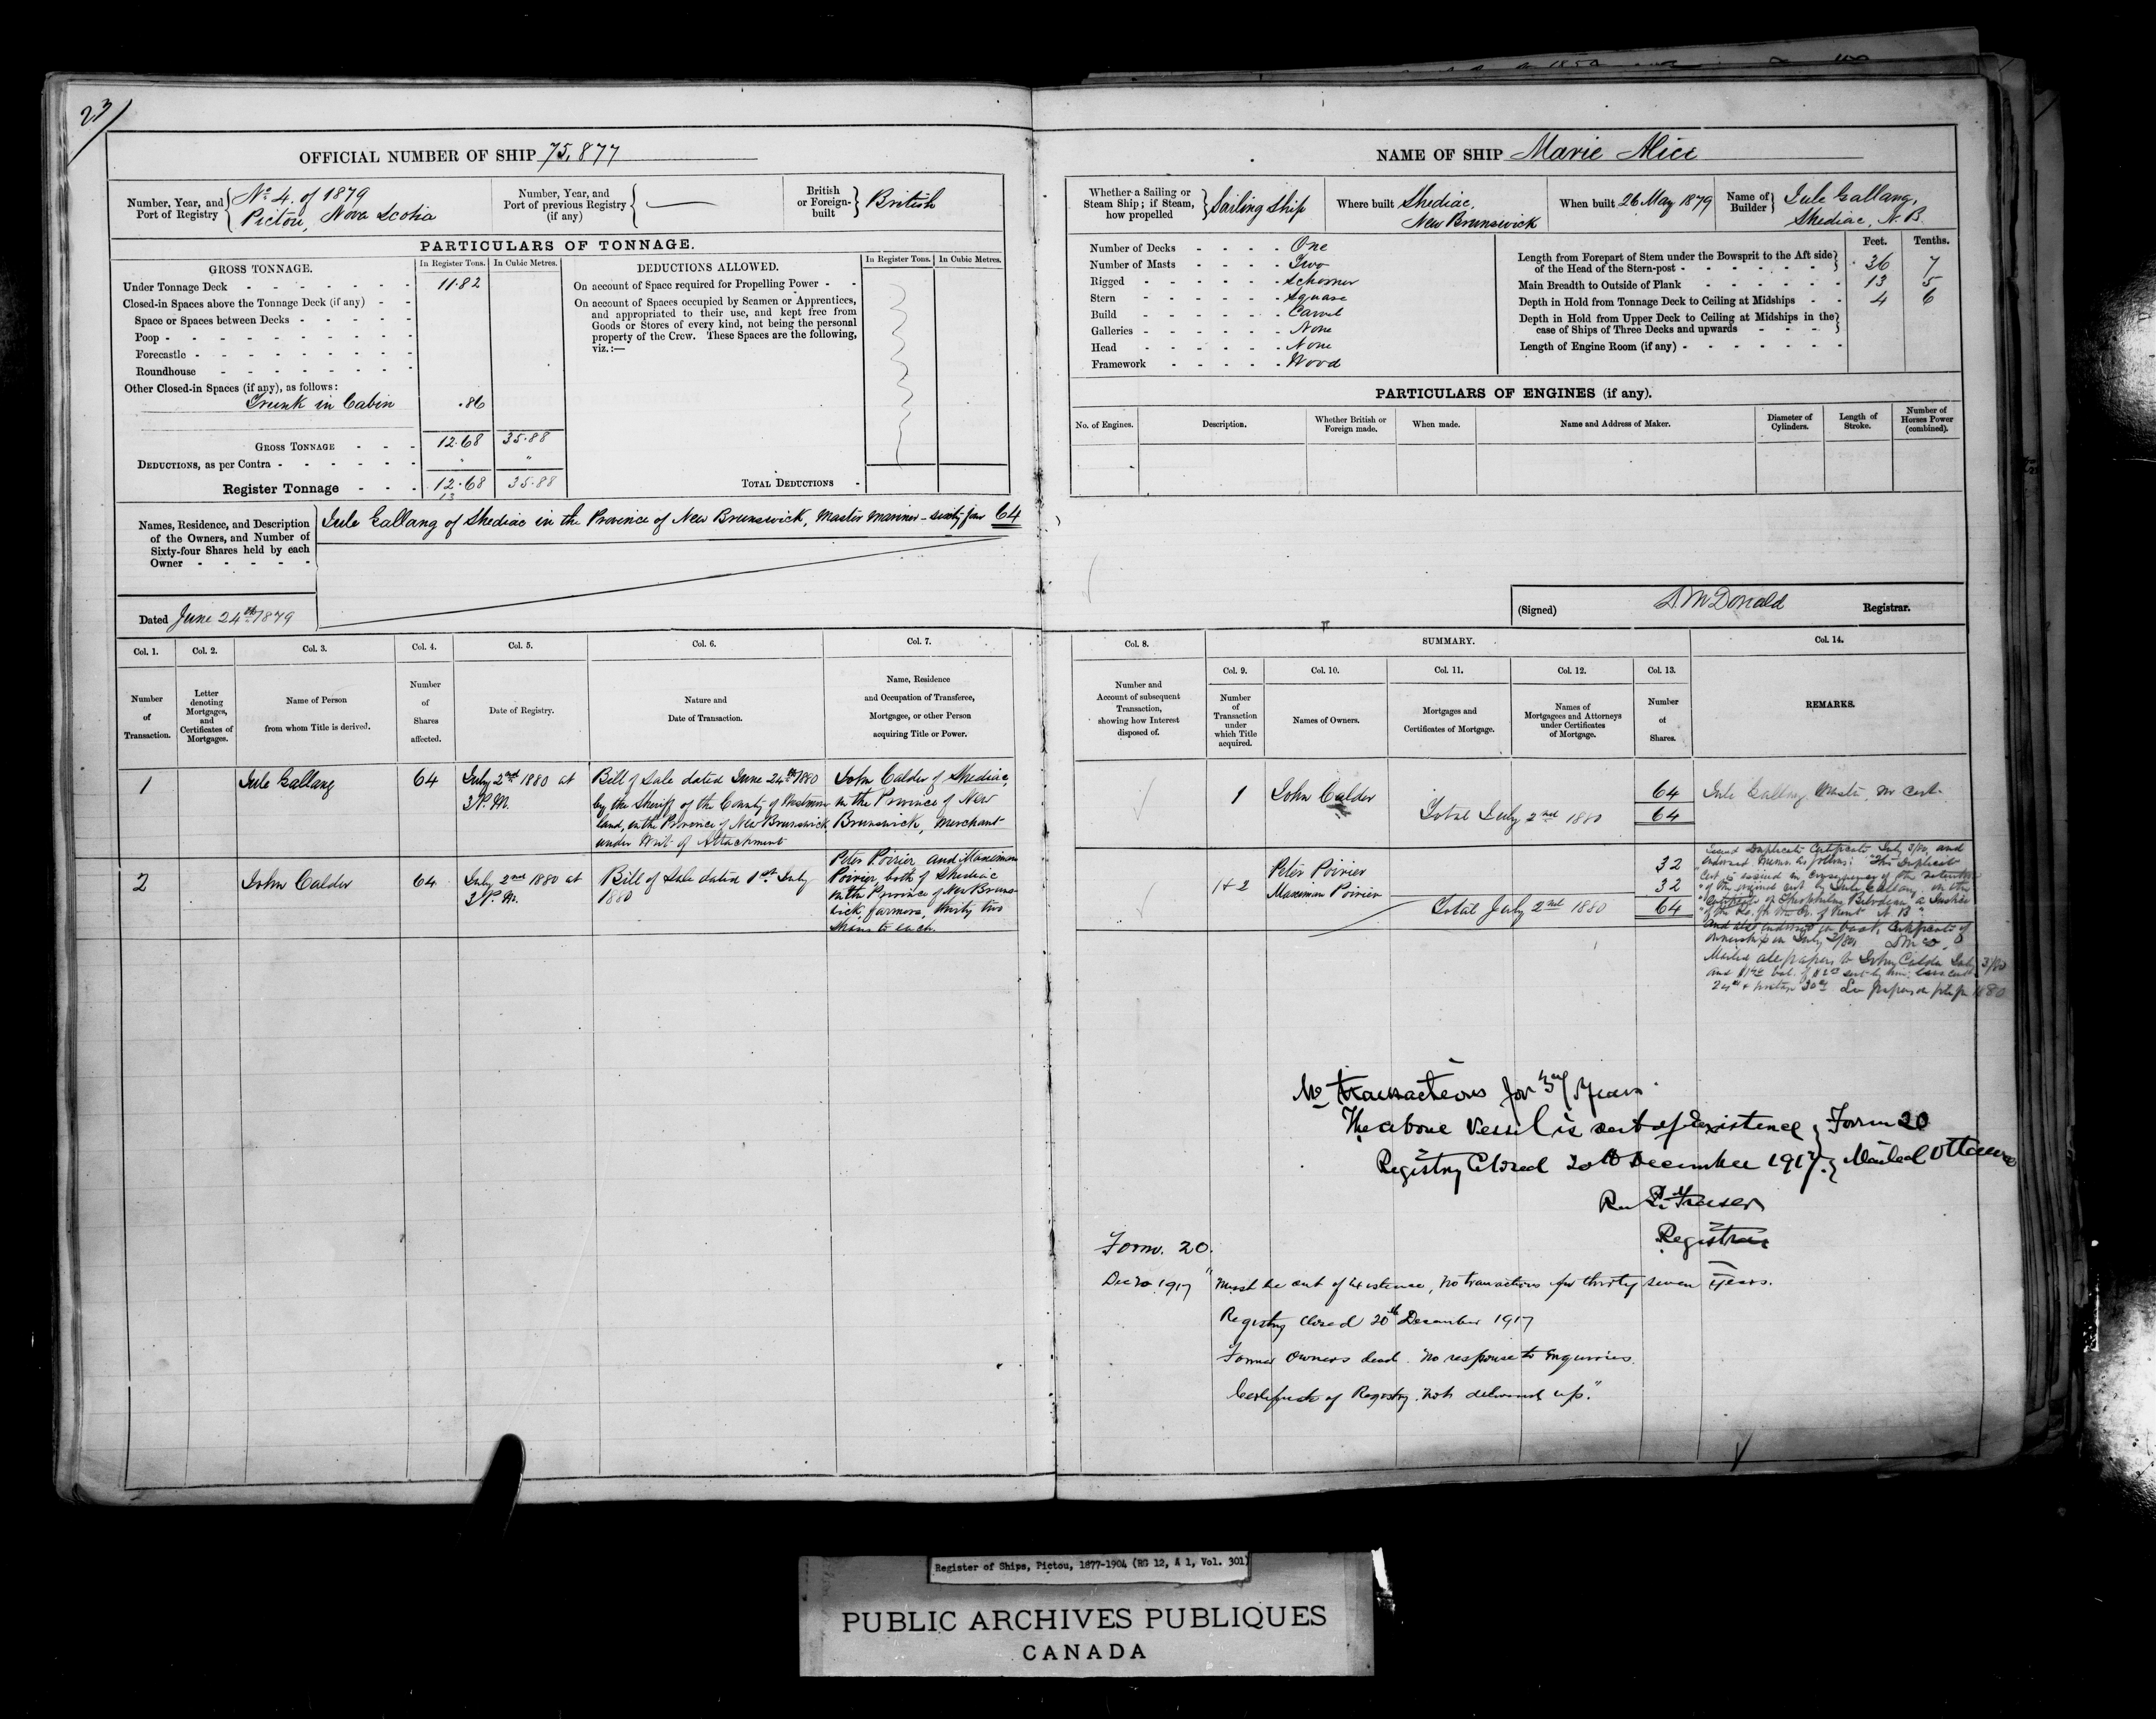 23
OFFICIAL NUMBER OF SHIP 75,877
Number, Year, and Port of Registry { No 4. of 1879
Pictou, Nova Scotia
Number, Year, and Port of previous Registry (if any) { —
British or Foreign-built } British
PARTICULARS OF TONNAGE.
GROSS TONNAGE.
In Register Tons.
In Cubic Metres.
DEDUCTIONS ALLOWED.
In Register Tons.
In Cubic Metres.
Under Tonnage Deck 11.82
Closed-in Spaces above the Tonnage Deck (if any)
Space or Spaces between Decks
Poop
Forecastle
Roundhouse
Other Closed-in Spaces (if any), as follows:
Trunk in Cabin .86
GROSS TONNAGE 12.68 35.88
DEDUCTIONS, as per Contra " "
Register Tonnage 12.68 35.88
13
On account of Space required for Propelling Power
On account of Spaces occupied by Seamen or Apprentices,
and appropriated to their use, and kept free from
Goods or Stores of every kind, not being the personal
property of the Crew. These Spaces are the following,
viz.:—
TOTAL DEDUCTIONS
Names, Residence, and Description
of the Owners, and Number of
Sixty-four Shares held by each
Owner
Jule Gallang of Shediac in the Province of New Brunswick, Master Mariner - sixty four 64
Dated June 24th 1879
Col. 1.
Number of Transaction.
Col. 2.
Letter denoting Mortgages, and Certificates of Mortgages.
Col. 3.
Name of Person from whom Title is derived.
Col. 4.
Number of Shares affected.
Col. 5.
Date of Registry.
Col. 6.
Nature and Date of Transaction.
Col. 7.
Name, Residence and Occupation of Transferee, Mortgagee, or other Person acquiring Title or Power.
1
Jule Gallang
64
July 2nd 1880 at
3 P.M.
Bill of Sale dated June 24th 1880
by the Sheriff of the County of Westmor
land, in the Province of New Brunswick
under Writ of Attachment
John Calder of Shediac,
in the Province of New
Brunswick, Merchant
2
John Calder
64
July 2nd 1880 at
3 P.M.
Bill of Sale dated 1st July
1880
Peter Poirier and Maximin
Poirier, both of Shediac
in the Province of New Bruns-
wick farmers, thirty two
Shares to each.
NAME OF SHIP Marie Alice
Whether a Sailing or Steam Ship; if Steam, how propelled } Sailing Ship
Where built Shediac,
New Brunswick
When built 26 May 1879
Name of Builder } Jule Gallang,
Shediac, N.B.
Number of Decks One
Number of Masts Two
Rigged Schooner
Stern Square
Build Carvel
Galleries None
Head None
Framework Wood
Feet. Tenths.
Length from Forepart of Stem under the Bowsprit to the Aft side
of the Head of the Stern-post 36 7
Main Breadth to Outside of Plank 13 5
Depth in Hold from Tonnage Deck to Ceiling at Midships 4 6
Depth in Hold from Upper Deck to Ceiling at Midships in the
case of Ships of Three Decks and upwards
Length of Engine Room (if any)
PARTICULARS OF ENGINES (if any).
No. of Engines.
Description.
Whether British or Foreign made.
When made.
Name and Address of Maker.
Diameter of Cylinders.
Length of Stroke.
Number of Horses Power (combined).
(Signed) D McDonald Registrar.
Col. 8.
Number and Account of subsequent Transaction, showing how Interest disposed of.
SUMMARY.
Col. 9.
Number of Transaction under which Title acquired.
Col. 10.
Names of Owners.
Col. 11.
Mortgages and Certificates of Mortgage.
Col. 12.
Names of Mortgagees and Attorneys under Certificates of Mortgage.
Col. 13.
Number of Shares.
Col. 14.
REMARKS.
1
John Calder
64
Total July 2nd 1880
64
Jule Gallang Master, no cert.
1+2
Peter Poirier 32
Maximin Poirier 32
Total July 2nd 1880 64
Issued Duplicate Certificate July 3/80, and
endorsed memo as follows: "This Duplicate
Cert. is issued in consequence of the retention
of the original cert. by Jule Gallang, on the
Certificate of a Justice
of the for the Co. of Kent N B"
and also endorsed on back, Certificate of
ownership on July 2/80
Mailed all papers to John Calder July 3/80
No transactions for 37 years.
The above Vessel is out of existence } Form 20
Registry Closed 20th December 1917. } Mailed Ottawa
Fraser
Registrar
Form. 20.
Dec 20. 1917 "Must be out of existence, no transactions for thirty seven years.
Registry closed 20th December 1917
Former owners dead. No response to enquiries.
Certificate of Registry not delivered up."
Register of Ships, Pictou, 1877-1904 (RG 12, A 1, Vol. 301)
PUBLIC ARCHIVES PUBLIQUES
CANADA